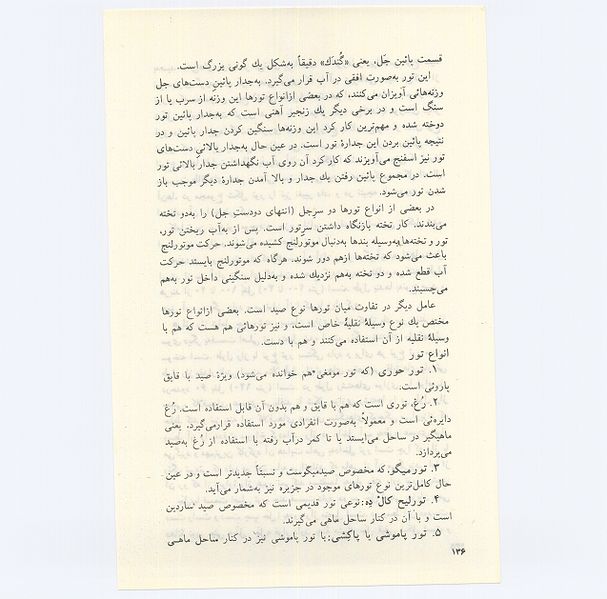 قسمت پائین جَل، یعنی «گُندَك» دقیقاً به‌شکل یك گونی بزرگ است.
این تور به‌صورت افقی در آب قرار می‌گیرد. به‌جدار پائین دست‌های جل
وزنه‌هائی آویزان می‌کنند، که در بعضی ازانواع تورها این وزنه از سرب یا از
سنگ است و در برخی دیگر یك زنجیر آهنی است که به‌جدار پائین تور
دوخته شده و مهم‌ترین کار کرد این وزنه‌ها سنگین کردن جدار پائین و در
نتیجه پائین بردن این جدارهٔ تور است. در عین حال به‌جدار بالائی دست‌های
تور نیز اسفنج می‌آویزند که کار کرد آن روی آب نگهداشتن جدار بالائی تور
است. در مجموع پائین رفتن یك جدار و بالا آمدن جدارهٔ دیگر موجب باز
شدن تور می‌شود.
در بعضی از انواع تورها دو سرجل (انتهای دودست جل) را به‌دو تخته
می‌بندند. کار تخته بازنگاه داشتن سرتور است. پس از به‌آب ریختن تور،
تور و تخته‌ها به‌وسیله بندها به‌دنبال موتورلنج کشیده می‌شوند. حرکت موتورلنج
باعث می‌شود که تخته‌ها ازهم دور شوند. هرگاه که موتورلنج بایستد حرکت
آب قطع شده و دو تخته به‌هم نزدیك شده و به‌دلیل سنگینی داخل تور به‌هم
می‌چسبند.
عامل دیگر در تفاوت میان تورها نوع صید است. بعضی ازانواع تورها
مختص یك نوع وسیلهٔ نقلیهٔ خاص است، و نیز تورهائی هم هست که هم با
وسیلهٔ نقلیه از آن استفاده می‌کنند و هم با دست.
انواع تور
۱. تور حوری (که تور مومغی هم خوانده می‌شود) ویژهٔ صید با قایق
پاروئی است.
۲. رُغ، توری است که هم با قایق و هم بدون آن قابل استفاده است. رُغ
دایره‌ئی است و معمولاً به‌صورت انفرادی مورد استفاده قرارمی‌گیرد. یعنی
ماهیگیر در ساحل می‌ایستد یا تا کمر درآب رفته با استفاده از رُغ به‌صید
می‌پردازد.
۳. تور میگو، که مخصوص صیدمیگوست و نسبتاً جدیدتر است و در عین
حال کامل‌ترین نوع تورهای موجود در جزیره نیز به‌شمار می‌آید.
۴. تورلیح کال دِه: نوعی تور قدیمی است که مخصوص صید ساردین
است و با آن در کنار ساحل ماهی می‌گیرند.
۵. تور پاموشی یا پاکِشی: با تور پاموشی نیز در کنار ساحل ماهی
۱۳۶